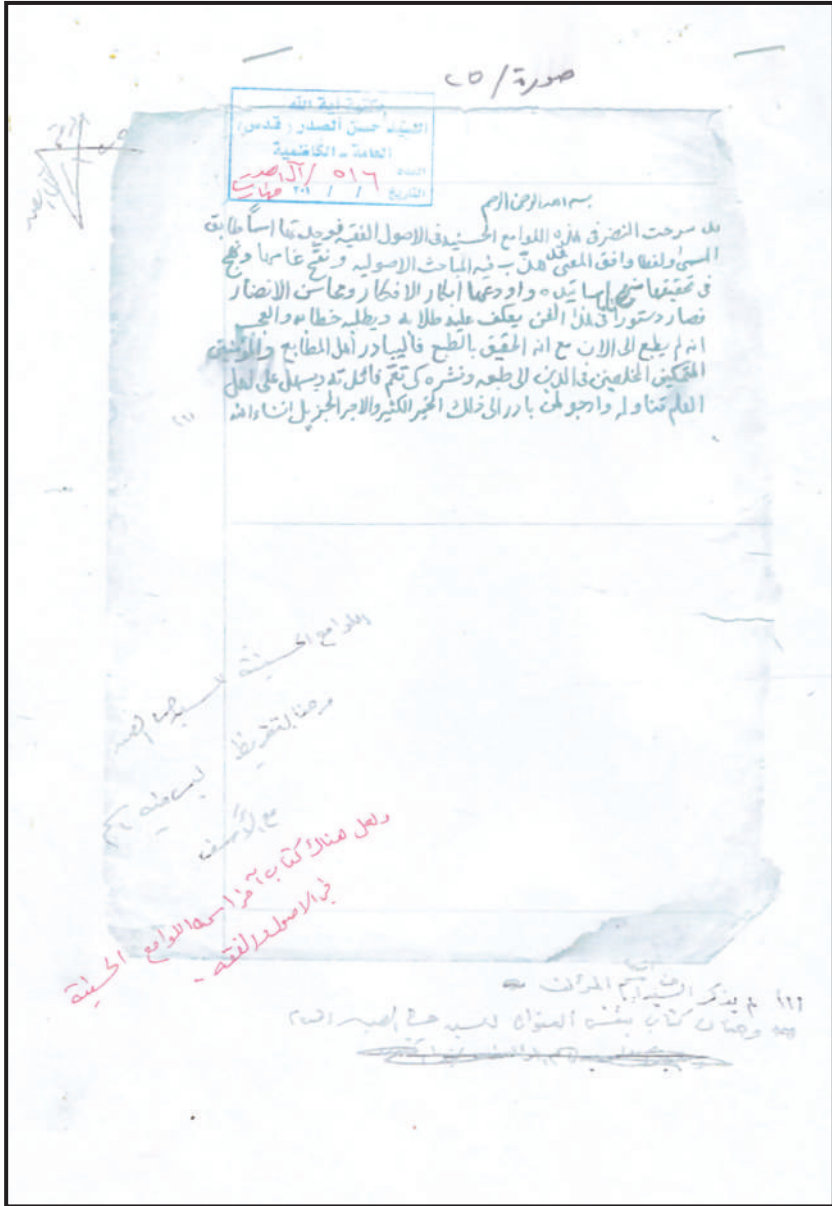 صورة / ٢٥
مكتبة آية الله
السيد حسن الصدر (قدس)
العامة - الكاظمية
العدد ٥١٦ / آل الصدر
التاريخ / / ٢٠١
بسم الله الرحمن الرحيم
قد سرحت النضر في هذه اللوامع الحسنيه في الاصول الفقيه فوجدتها اسماً طابق
المسمى ولفظا وافق المعنى هذب فيه المباحث الاصوليه ونقح غامها ونهج
في تحقيقها اساتيذه واودعها ابكار الافكار ومحاسن الانضار
فصار دستوراً في هذا الفن يعكف عليه طلابه ويطلبه خطابه والعجب
انه لم يطبع الى الان مع انه الحقيق بالطبع فاليبادر اهل المطابع
المتمكنين المخلصين في الدين الى طبعه ونشره كي تعم فائدته ويسهل على اهل
العلم تناوله وارجو لمن بادر الى ذلك الخير الكثير والاجر الجزيل انشاء الله
اللوامع الحسنية للسيد
التقريظ ليس فيه
مع الأسف
ولعل هناك كتاب آخر اسمه اللوامع الحسنية
في الاصول والفقه -
(١) لم يذكر السيد اسم المؤلف
وهناك كتاب بنفس العنوان للسيد حسن الصدر